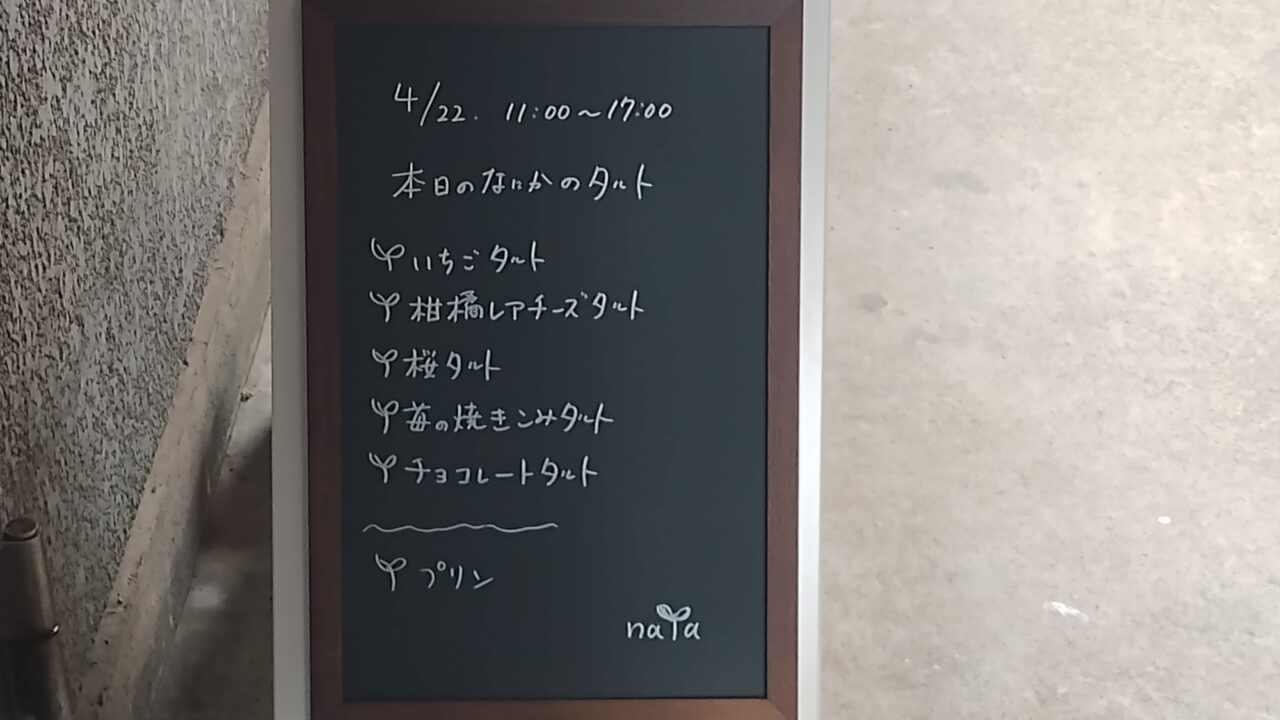 4/22. 11:00～17:00
本日のなにかのタルト
いちごタルト
柑橘レアチーズタルト
桜タルト
苺の焼きこみタルト
チョコレートタルト
プリン
naYa